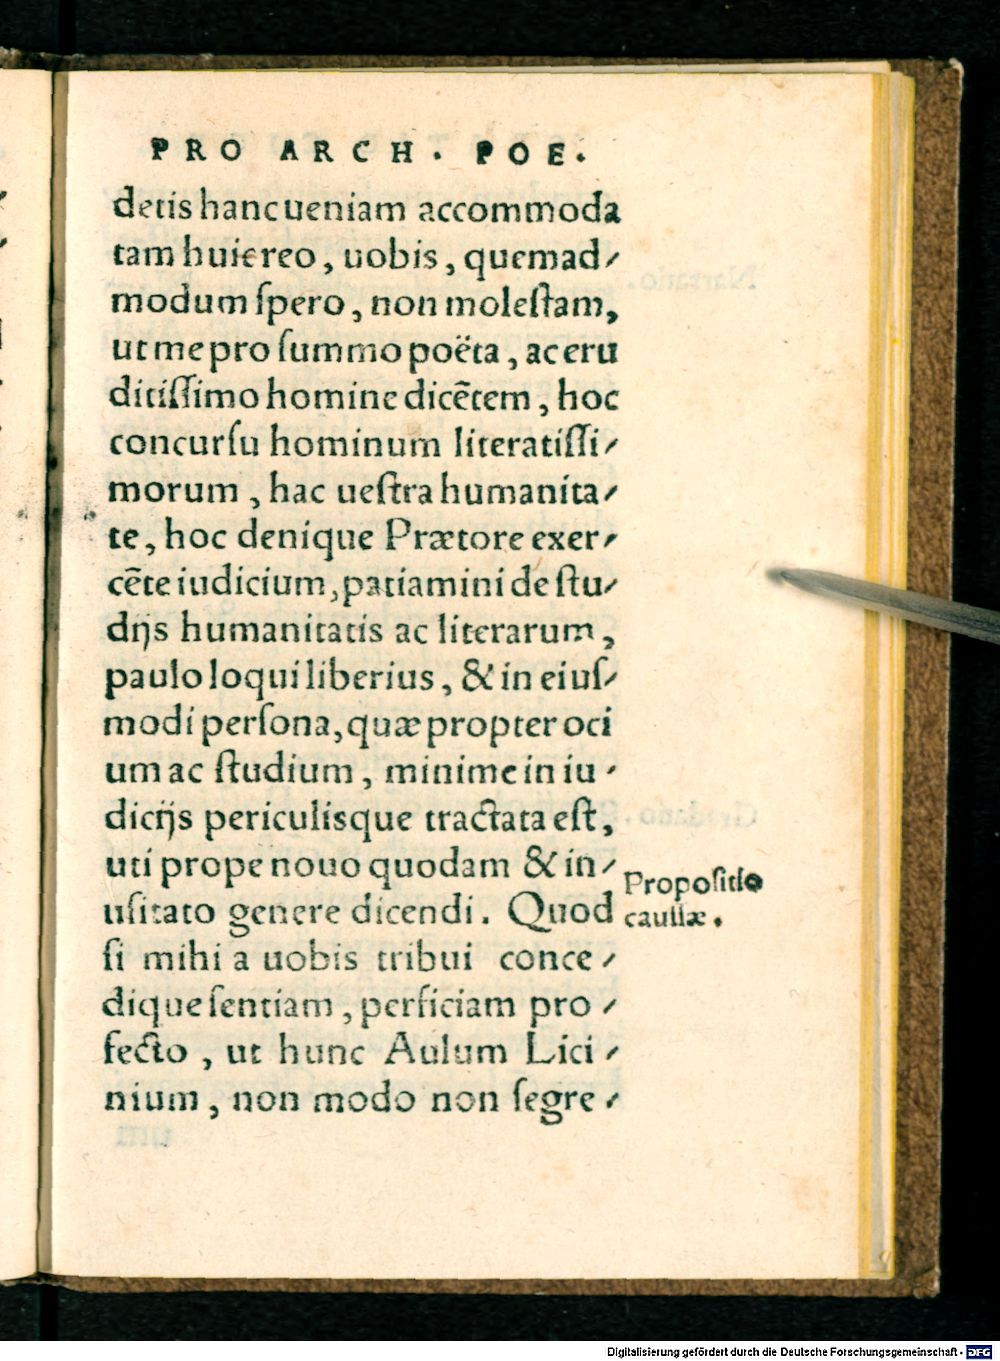 PRO ARCH. POE.
detis hanc ueniam accommoda
tam huic reo, uobis, quemad⸗
modum ſpero, non moleſtam,
ut me pro ſummo poëta, ac eru
ditiſſimo homine dicētem, hoc
concurſu hominum literatiſſi⸗
morum, hac ueſtra humanita⸗
te, hoc denique Prætore exer⸗
cēte iudicium, patiamini de ſtu⸗
dijs humanitatis ac literarum,
paulo loqui liberius, & in eiuſ⸗
modi perſona, quæ propter oci
um ac ſtudium, minime in iu⸗
dicijs periculisque tractata eſt,
uti prope nouo quodam & in⸗
uſitato genere dicendi. Quod
ſi mihi a uobis tribui conce⸗
dique ſentiam, perficiam pro⸗
fecto, ut hunc Aulum Lici⸗
nium, non modo non ſegre⸗
Propoſitio
cauſſæ.
Digitalisierung gefördert durch die Deutsche Forschungsgemeinschaft - DFG